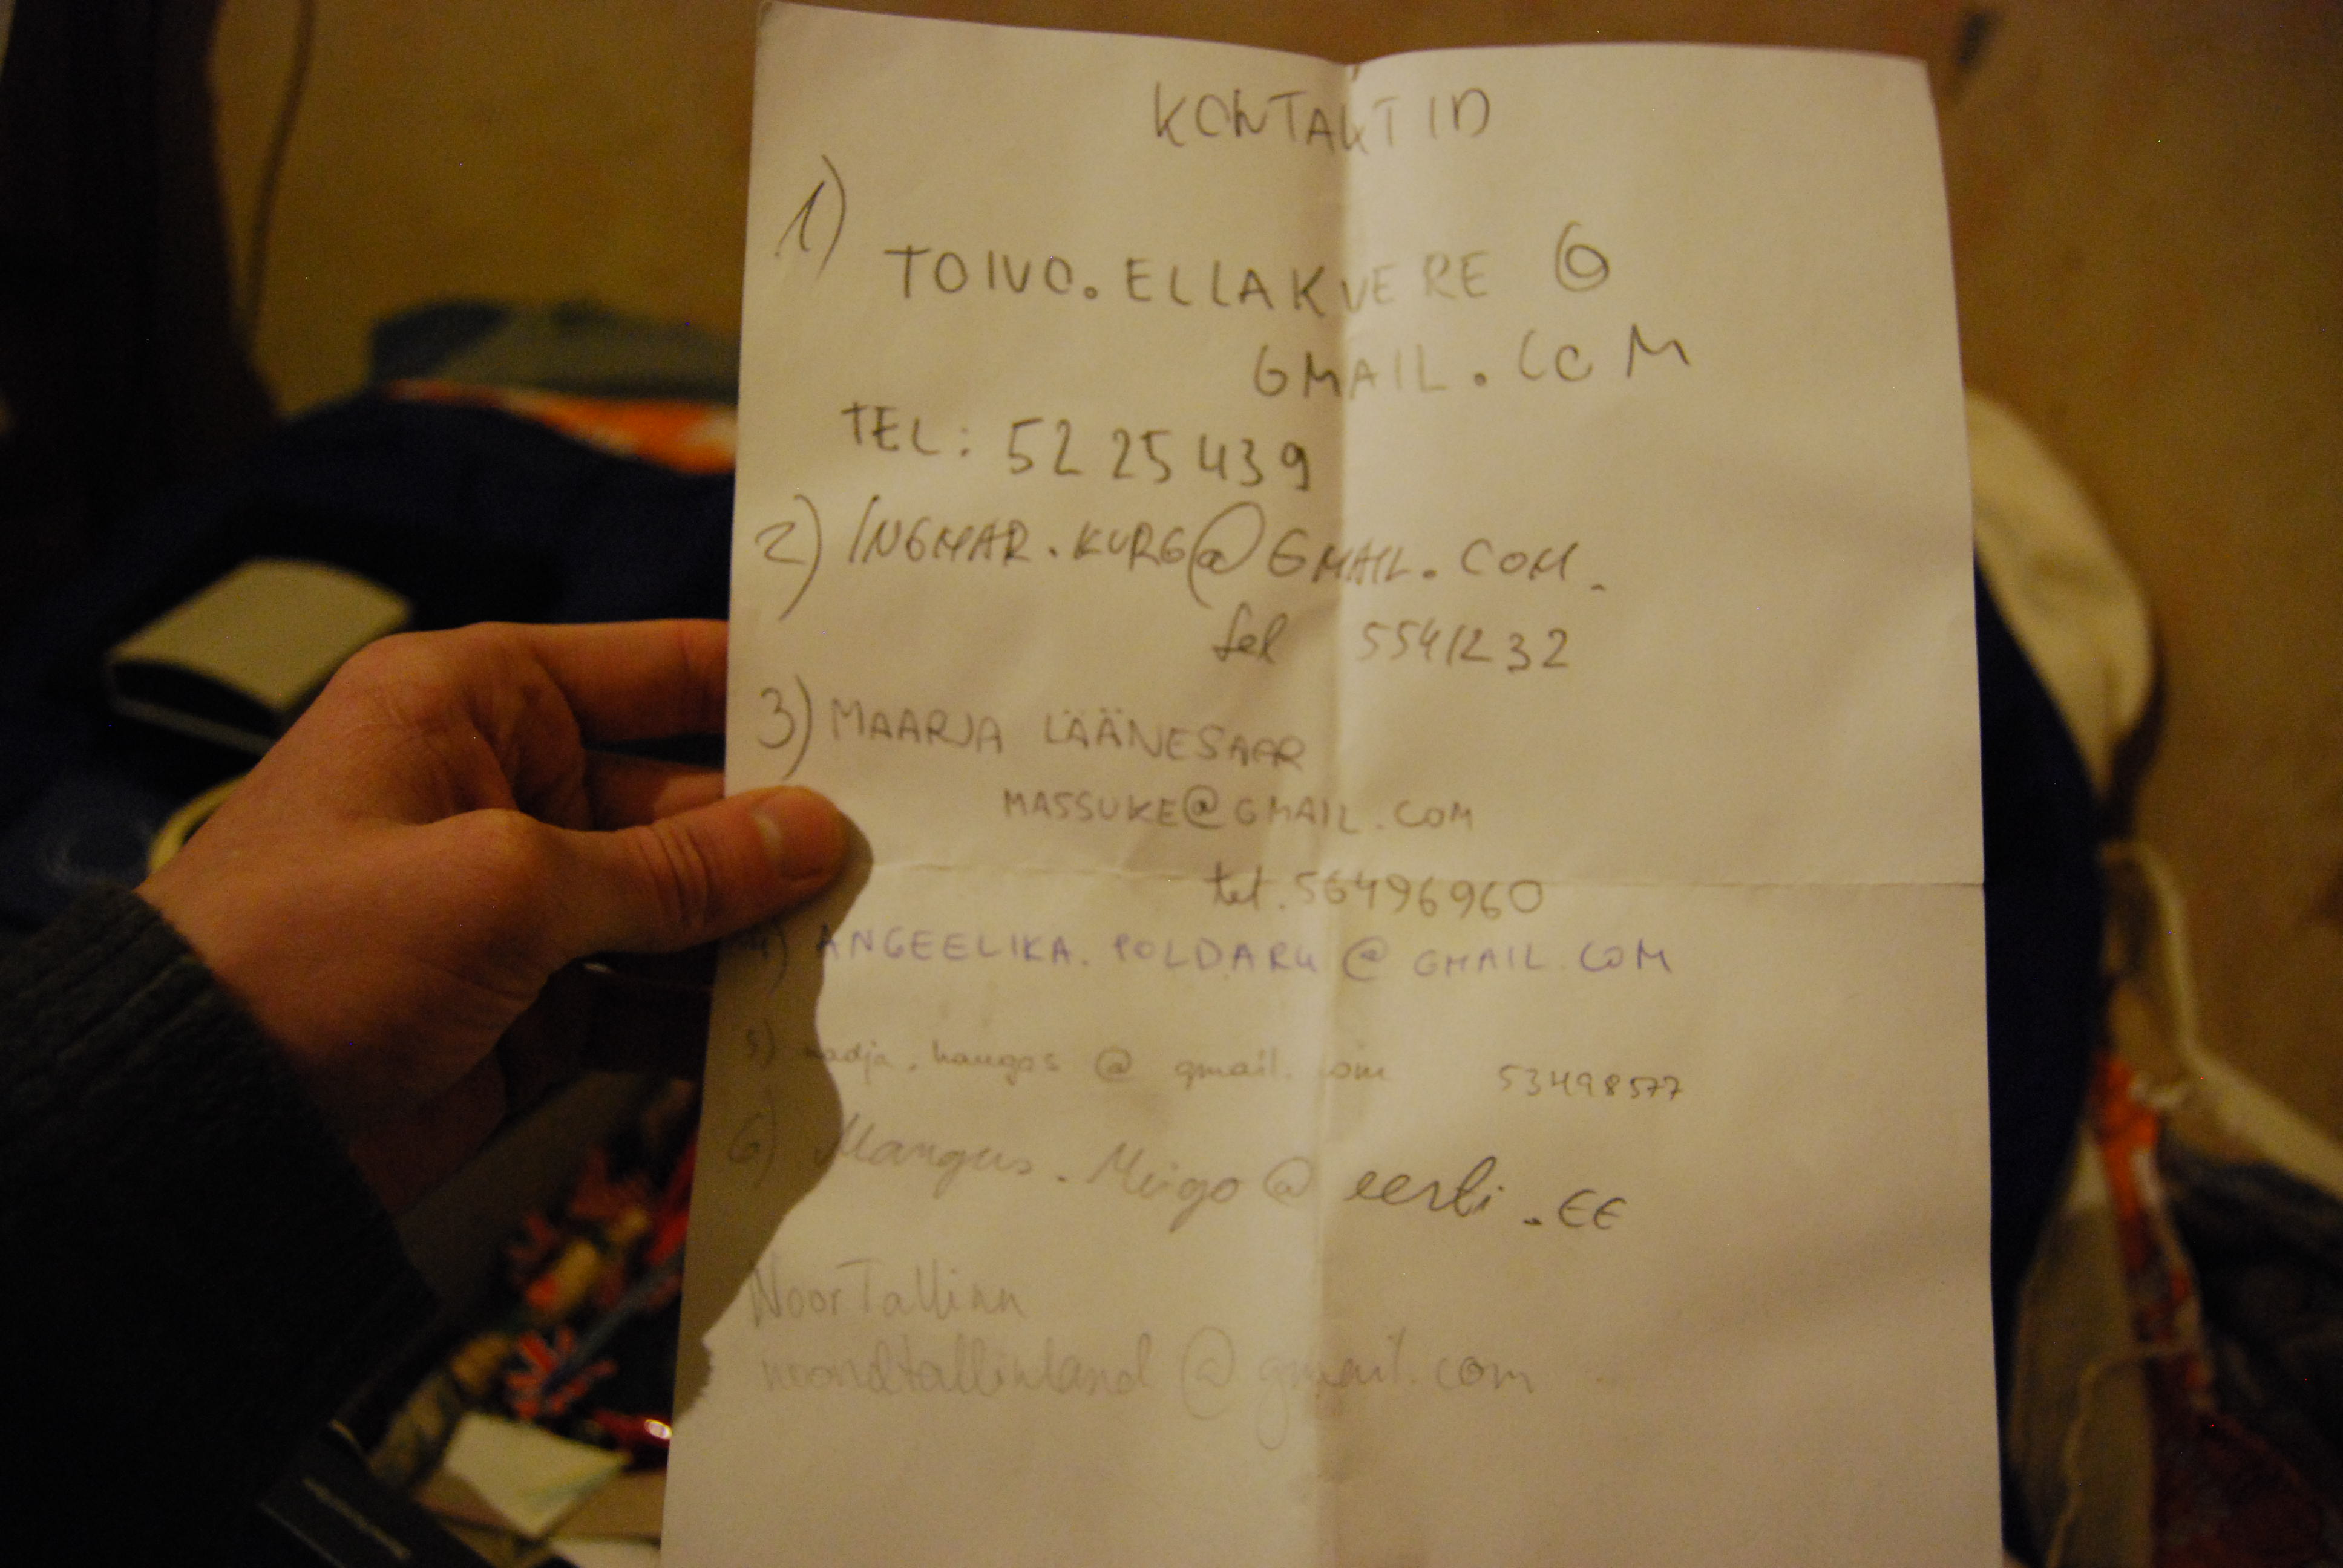 KONTAKTID
1)
TOIVO.ELLAKVERE @
GMAIL.COM
TEL: 52 25 439
2) INGMAR.KURG@GMAIL.COM.
tel 5541232
3) MAARJA LÄÄNESAAR
MASSUKE@GMAIL.COM
tel. 56496960
4) ANGEELIKA.POLDARU@GMAIL.COM
5) @ gmail.com 53498577
6) @ eesti.ee
NoorTallinn
@gmail.com